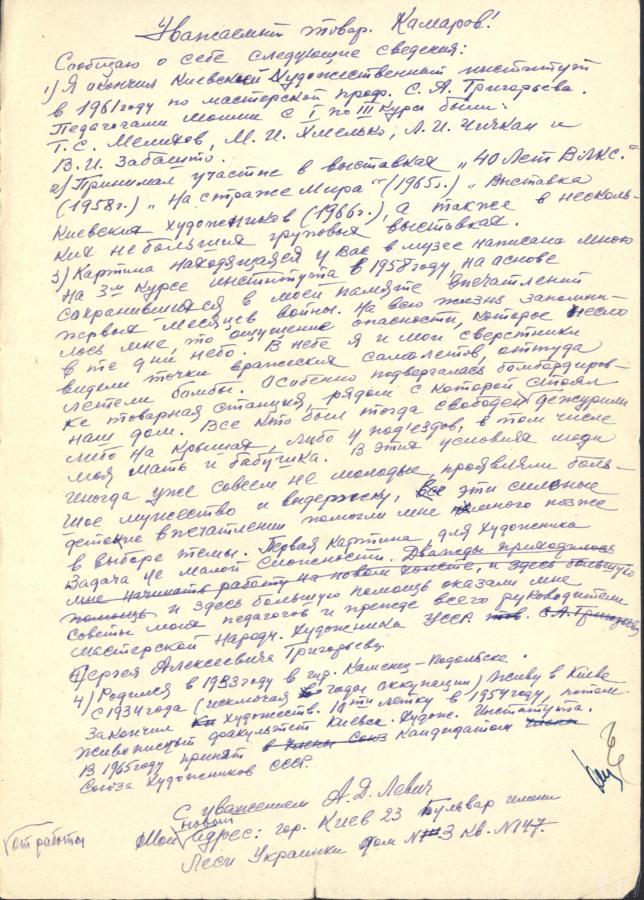 Уважаемый товар. Камаров!
Сообщаю о себе следующие сведения:
1) Я окончил Киевский Художественный институт
в 1961 году по мастерской проф. С. А. Григорьева.
Педагогами моими с I по III Курс были:
Т.С. Мелихов, М. И. Хмелько, Л. И. Чичкан и
В. И. Забашто.
2) Принимал участие в выставках „40 Лет ВЛКС."
(1958 г.) „На страже Мира" (1965 г.) „Выставка
Киевских художников (1966 г.), а также в несколь-
ких небольших груповых выставках.
3) Картина находящаяся у Вас в музее написана мною
на 3м Курсе института в 1958 году на основе
сохранившихся в моей памяти впечатлений
первых месяцев войны. На всю жизнь запомни-
лось мне, то ощущение опасности, которое несло
в те дни небо. В небе я и мои сверстники
видели точки вражеских самолетов, оттуда
летели бомбы. Особенно подвергалась бомбардиров-
ке товарная станция, рядом с которой стоял
наш дом. Все кто был тогда свободен дежурили
либо на крышах, либо у подъездов, в том числе
моя мать и бабушка. В этих условиях люди
иногда уже совсем не молодые, проявляли боль-
шое мужество и выдержку, все эти сильные
детские впечатления помогли мне немного позже
в выборе темы. Первая картина, для художника
задача не малой сложности. Дважды приходилось
мне начинать работу на новом холсте, и здесь большую
помощь и здесь большую помощь оказали мне
советы моих педагогов и прежде всего руководителя
мастерской Народн. Художника УССР тов. С. А. Григорьева
Сергея Алексеевича Григорьева.
4) Родился в 1933 году в гор. Каменец-Подольске.
С 1934 года (исключая годы оккупации) живу в Киеве
Закончил Художеств. 10ти летку в 1954 году, потом
живописный факультет Киевск. Худож. Института.
В 1965 году принят в члены Союз кандидатом члены
Союза Художников СССР.
С уважением А. Д. Левич
новый
Мой адрес: гор. Киев 23 Бульвар имени
Леси Украинки дом № 3 кв. № 147.
от работы